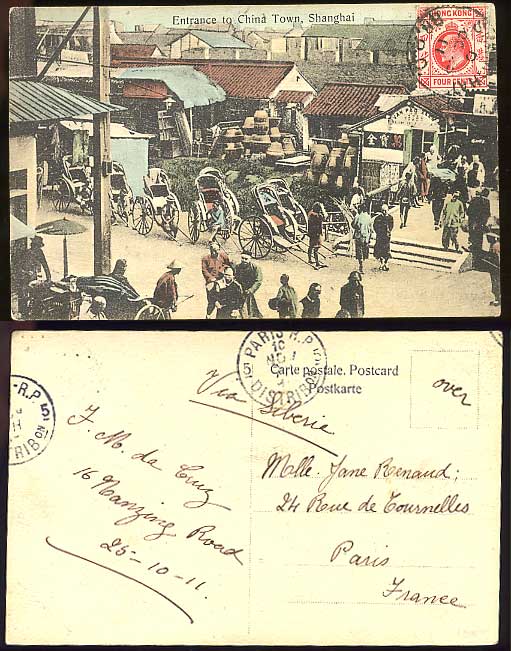 Entrance to China Town, Shanghai
HONG KONG
FOUR CENTS
PARIS R.P.
DISTRIBON
Carte postale. Postcard
Postkarte
over
Via Siberie
J. M. da Cruz
16 Nanzing Road
25-10-11.
Mlle. Jane Renaud;
24 Rue de Tournelles
Paris
France